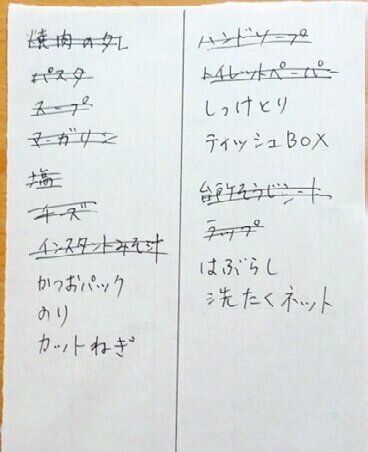 焼肉のタレ
パスタ
スープ
マーガリン
塩
チーズ
インスタントみそ汁
かつおパック
のり
カットねぎ
ハンドソープ
トイレットペーパー
しっけとり
ティッシュBOX
台所そうじシート
ラップ
はぶらし
洗たくネット